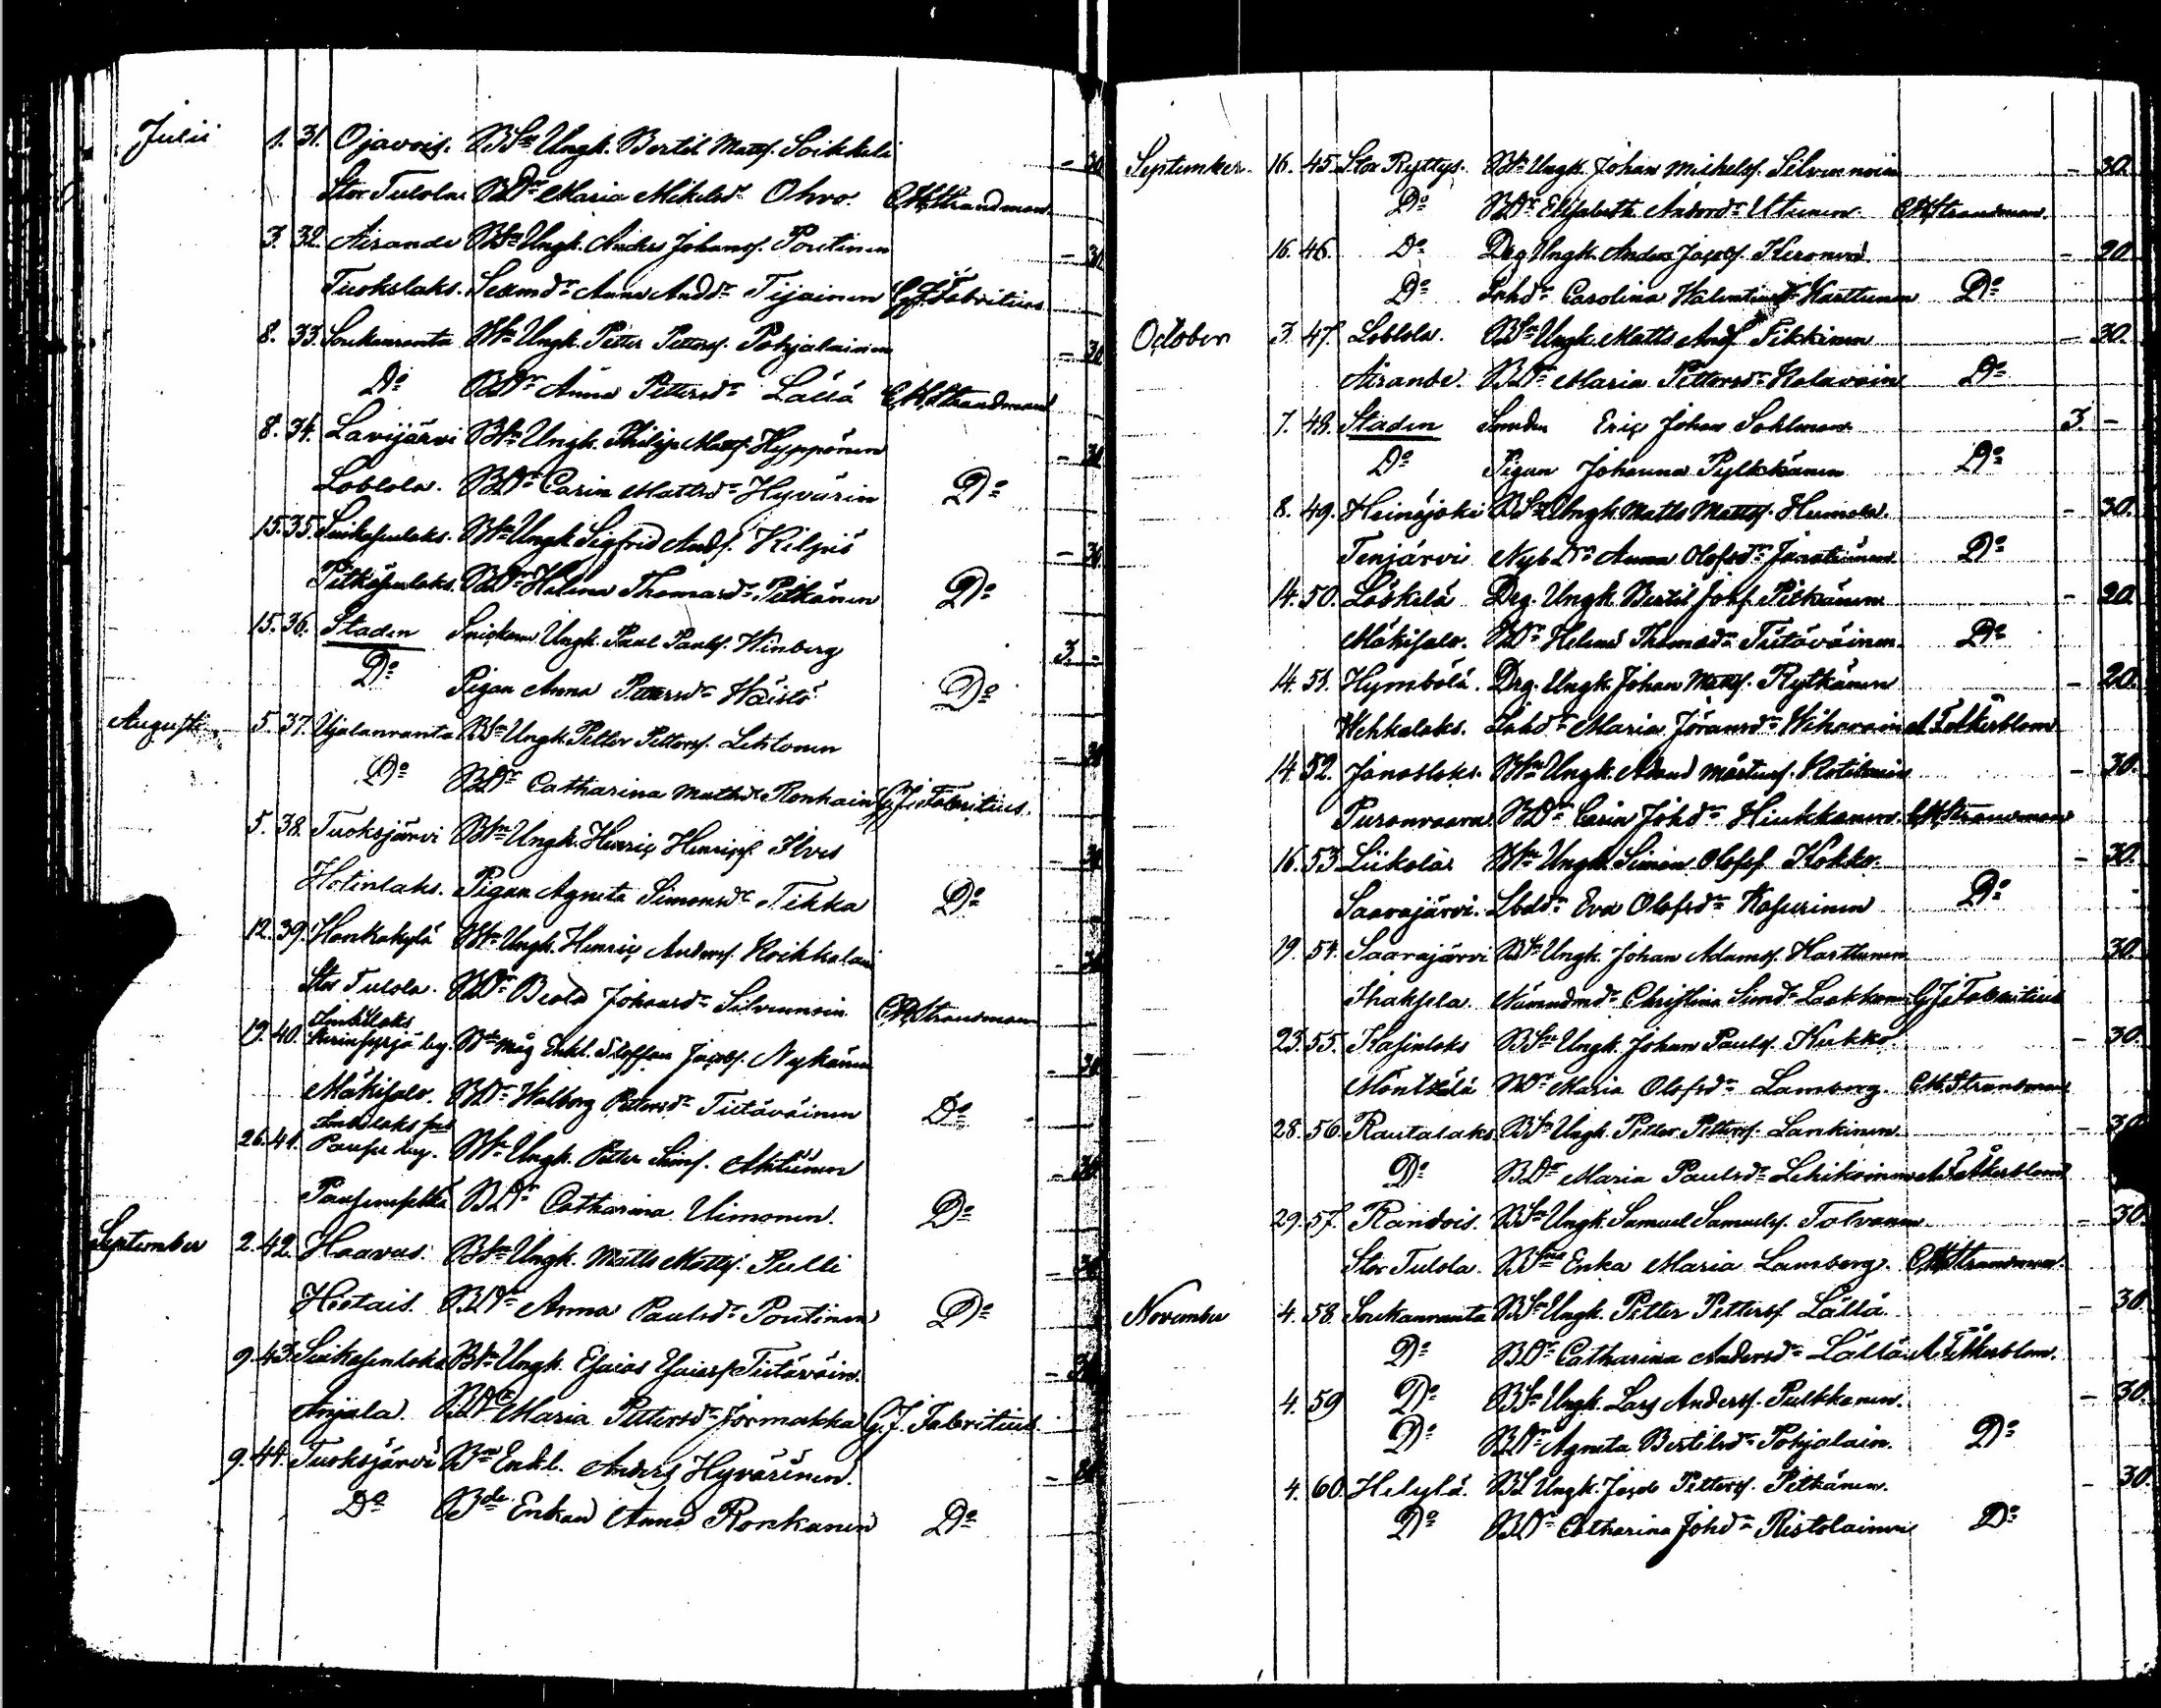 Julii 1. 31. Ojavois. BSn Ungk. Bertil Matts. Soikkeli – 30
Stor Tulola BDr Maria Mikelsdr Ohvo. C.M. Strandman
3. 32. Airande BSn Ungk. Anders Johanss. Poutinen – 30
Tuokslaks. Anna Andd:r Tijainen G.J. Fabritius
8. 33. Soukanranta BSn Ungk. Petter Petters. Pohjalainen – 30
Do BDr Anna Pettersdr Lällä C.M. Strandman
8. 34. Lavijärvi BSn Ungk. Philip Matts. Hyppönen – 30
Loblola. BDr Carin Mattsdr Hyvärin Do
15. 35. BSn Ungk. Sigfrid Ands. Kilpiö – 30
BDr Helena Thomasdr Pitkänen Do
15. 36. Staden Snickaren Ungk. Paul Pauls. Winberg 3. –
Do Pigan Anna Pettersdr Do
Augusti 5. 37. BSn Ungk. Petter Petters. Lehtonen – 30
Do BDr Catharina Mattsdr Ronkain G.J. Fabritius.
5. 38. Tuoksjärvi BSn Ungk. Henric Henrics. Ilves – 30
Hotinlaks. Pigan Agneta Simonsdr Tikka Do
12. 39. Honkakylä BSn Ungk. Henric Anders. Koikkalain – 30
Stor Tulola. BDr Beata Johansdr Silvennoin C.M. Strandman
Imbilaks
19. 40. by. måg Enkl. Staffan Jacobs. Nykänen – 30
Mäkisalo. BDr Walborg Pettersdr Tiitäväinen Do
Imbilaks
26. 41. by. BSn Ungk. Petter Sims. – 30
BDr Catharina Uimonen. Do
September 2. 42. Haavus. BSn Ungk. Matts Matts. Pulli – 30
Hietais. BDr Anna Paulsdr Poutinen Do
9. 43. BSn Ungk. Esaias Esaiass. Tiitäväin. – 30
Anjala. BDr Maria Pettersdr Jormakka G.J. Fabritius.
9. 44. Tuoksjärvi Bn Enkl. Anders Hyvärinen. – 30
Do Bde Enkan Anna Ronkanen Do
September. 16. 45. Stor Ryttys. BSn Ungk. Johan Michels. Silvennoin – 30.
Do BDr Elisabeth Utunen. C.M. Strandman.
16. 46. Do Drg Ungk. Anders Jacobs. – 20.
Do Inhdr Carolina Karttunen Do
October 3. 47. Loblola. BSn Ungk. Matts Ands. Tikkinen – 30.
Airande. BDr Maria Pettersdr Kolavain Do
7. 48. Staden Eric Johan Sohlman. 3. –
Do Pigan Johanna Pylkkänen Do
8. 49. Heinäjoki BSn Ungk. Matts Matts. – 30.
Tenjärvi NybDr Anna Olofsdr Do
14. 50. Läskelä Drg. Ungk. Bertil Johs. Pitkänen – 20.
Mäkisalo. BDr Helena Thomsdr Tiitäväinen. Do
14. 51. Hymbölä. Drg. Ungk. Johan Matts. Rytkönen – 20.
Wehkalaks. Inhdr Maria Jöransdr Wihavain A.F. Åkerblom
14. 52. Janaslaks. BSn Ungk. Adam Mårtens. Kotilain – 30.
Pusonvaara. BDr Carin Johdr Hiukkanen. C.M. Strandman
16. 53. Liikola. BSn Ungk. Simon Olofss. Kokko. – 30.
Saarajärvi. Eva Olofsdr Kasurinen Do
19. 54. Saarajärvi BSn Ungk. Johan Adams. Karttunen 30.
Ihaksela. Christina Simdr Laakkanen G.J. Fabritius
23. 55. Kasinlaks BSn Ungk. Johan Pauls. Kukko – 30.
Mäntzälä BDr Maria Olofsdr Lamberg. C.M. Strandman
28. 56. Rautalaks BSn Ungk. Petter Petters. Lankinen. – 30
Do BDr Maria Paulsdr Lehikoinen A.F. Åkerblom
29. 57. Randois. BSn Ungk. Samuel Samuels. Tolvanen – 30.
Stor Tulola. Enka Maria Lamberg. C.M. Strandman.
November 4. 58. Soukanranta BSn Ungk. Petter Petters. Lällä – 30.
Do BDr Catharina Andersdr Lällä A.F. Åkerblom.
4. 59 Do BSn Ungk. Lars Anders. Pulkkanen. – 30.
Do BDr Agneta Bertilsdr Pohjalain. Do
4. 60. Helylä. BS Ungk. Jacob Petters. Pitkänen. – 30.
Do BDr Catharina Johdr Ristolainen Do